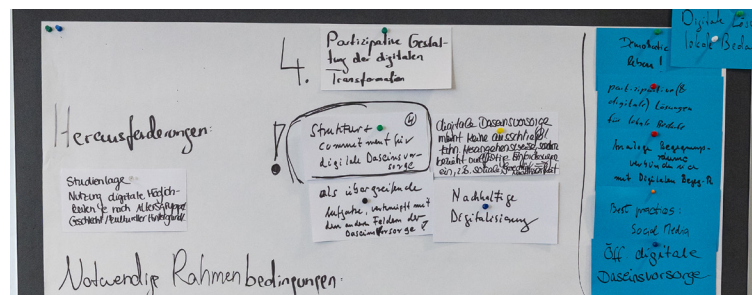 4.
Partizipative Gestal-
tung der digitalen
Transformation
Herausforderungen:
Studienlage
Nutzung digitale Möglich-
keiten je nach Altersgruppe
Geschlecht/kultureller Hintergrund
!
Struktur +
commitment für
digitale Daseinsvor-
sorge
als übergreifende
Aufgabe, verknüpft mit
den anderen Feldern der
Daseinsvorsorge
digitale Daseinsvorsorge
meint keine ausschließl.
bezieht
ein, z.B. soziale
Nachhaltige
Digitalisierung
Notwendige Rahmenbedingungen:
Digitale
lokale Beda
Demokratie
leben!
partizipative (&
digitale) Lösungen
für lokale Bedarfe
Analoge Begegnungs-
räume
verbinden
mit Digitalen Begeg.-R
Best practice:
Social Media
Öff digitale
Daseinsvorsorge